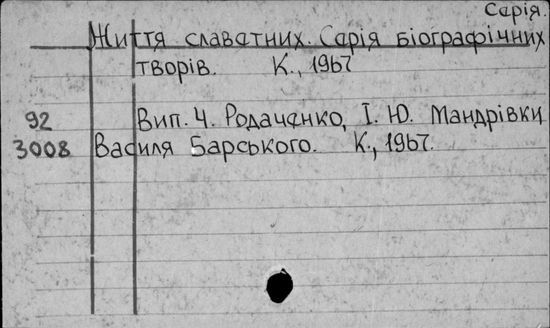 Серія.
Життя славетних. Серія біографічних
творів. К., 1967
92
Вип. 4. Родаченко, І. Ю. Мандрівки
3008 Василя Барського. К., 1967.